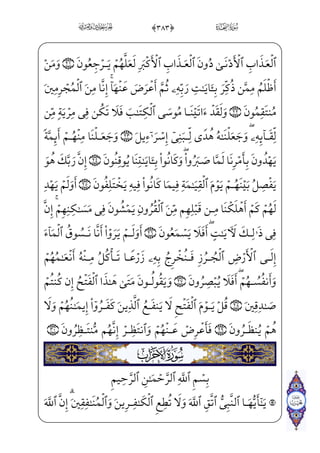 ﴿٣٨٣﴾
ٱلْعَذَابِ ٱلْأَدْنَىٰ دُونَ ٱلْعَذَابِ ٱلْأَكْبَرِ لَعَلَّهُمْ يَرْجِعُونَ ۝ وَمَنْ
أَظْلَمُ مِمَّن ذُكِّرَ بِـَٔايَـٰتِ رَبِّهِۦ ثُمَّ أَعْرَضَ عَنْهَآ ۚ إِنَّا مِنَ ٱلْمُجْرِمِينَ
مُنتَقِمُونَ ۝ وَلَقَدْ ءَاتَيْنَا مُوسَى ٱلْكِتَـٰبَ فَلَا تَكُن فِى مِرْيَةٍ مِّن
لِّقَآئِهِۦ ۖ وَجَعَلْنَـٰهُ هُدًى لِّبَنِىٓ إِسْرَٰٓءِيلَ ۝ وَجَعَلْنَا مِنْهُمْ أَئِمَّةً
يَهْدُونَ بِأَمْرِنَا لَمَّا صَبَرُوا۟ ۖ وَكَانُوا۟ بِـَٔايَـٰتِنَا يُوقِنُونَ ۝ إِنَّ رَبَّكَ هُوَ
يَفْصِلُ بَيْنَهُمْ يَوْمَ ٱلْقِيَـٰمَةِ فِيمَا كَانُوا۟ فِيهِ يَخْتَلِفُونَ ۝ أَوَلَمْ يَهْدِ
لَهُمْ كَمْ أَهْلَكْنَا مِن قَبْلِهِم مِّنَ ٱلْقُرُونِ يَمْشُونَ فِى مَسَـٰكِنِهِمْ ۚ إِنَّ
فِى ذَٰلِكَ لَـَٔايَـٰتٍ ۖ أَفَلَا يَسْمَعُونَ ۝ أَوَلَمْ يَرَوْا۟ أَنَّا نَسُوقُ ٱلْمَآءَ
إِلَى ٱلْأَرْضِ ٱلْجُرُزِ فَنُخْرِجُ بِهِۦ زَرْعًا تَأْكُلُ مِنْهُ أَنْعَـٰمُهُمْ
وَأَنفُسُهُمْ ۖ أَفَلَا يُبْصِرُونَ ۝ وَيَقُولُونَ مَتَىٰ هَـٰذَا ٱلْفَتْحُ إِن كُنتُمْ
صَـٰدِقِينَ ۝ قُلْ يَوْمَ ٱلْفَتْحِ لَا يَنفَعُ ٱلَّذِينَ كَفَرُوٓا۟ إِيمَـٰنُهُمْ وَلَا
هُمْ يُنظَرُونَ ۝ فَأَعْرِضْ عَنْهُمْ وَٱنتَظِرْ إِنَّهُم مُّنتَظِرُونَ ۝
سُورَةُ ٱلْأَحْزَابِ
بِسْمِ ٱللَّهِ ٱلرَّحْمَـٰنِ ٱلرَّحِيمِ
يَـٰٓأَيُّهَا ٱلنَّبِىُّ ٱتَّقِ ٱللَّهَ وَلَا تُطِعِ ٱلْكَـٰفِرِينَ وَٱلْمُنَـٰفِقِينَ ۗ إِنَّ ٱللَّهَ